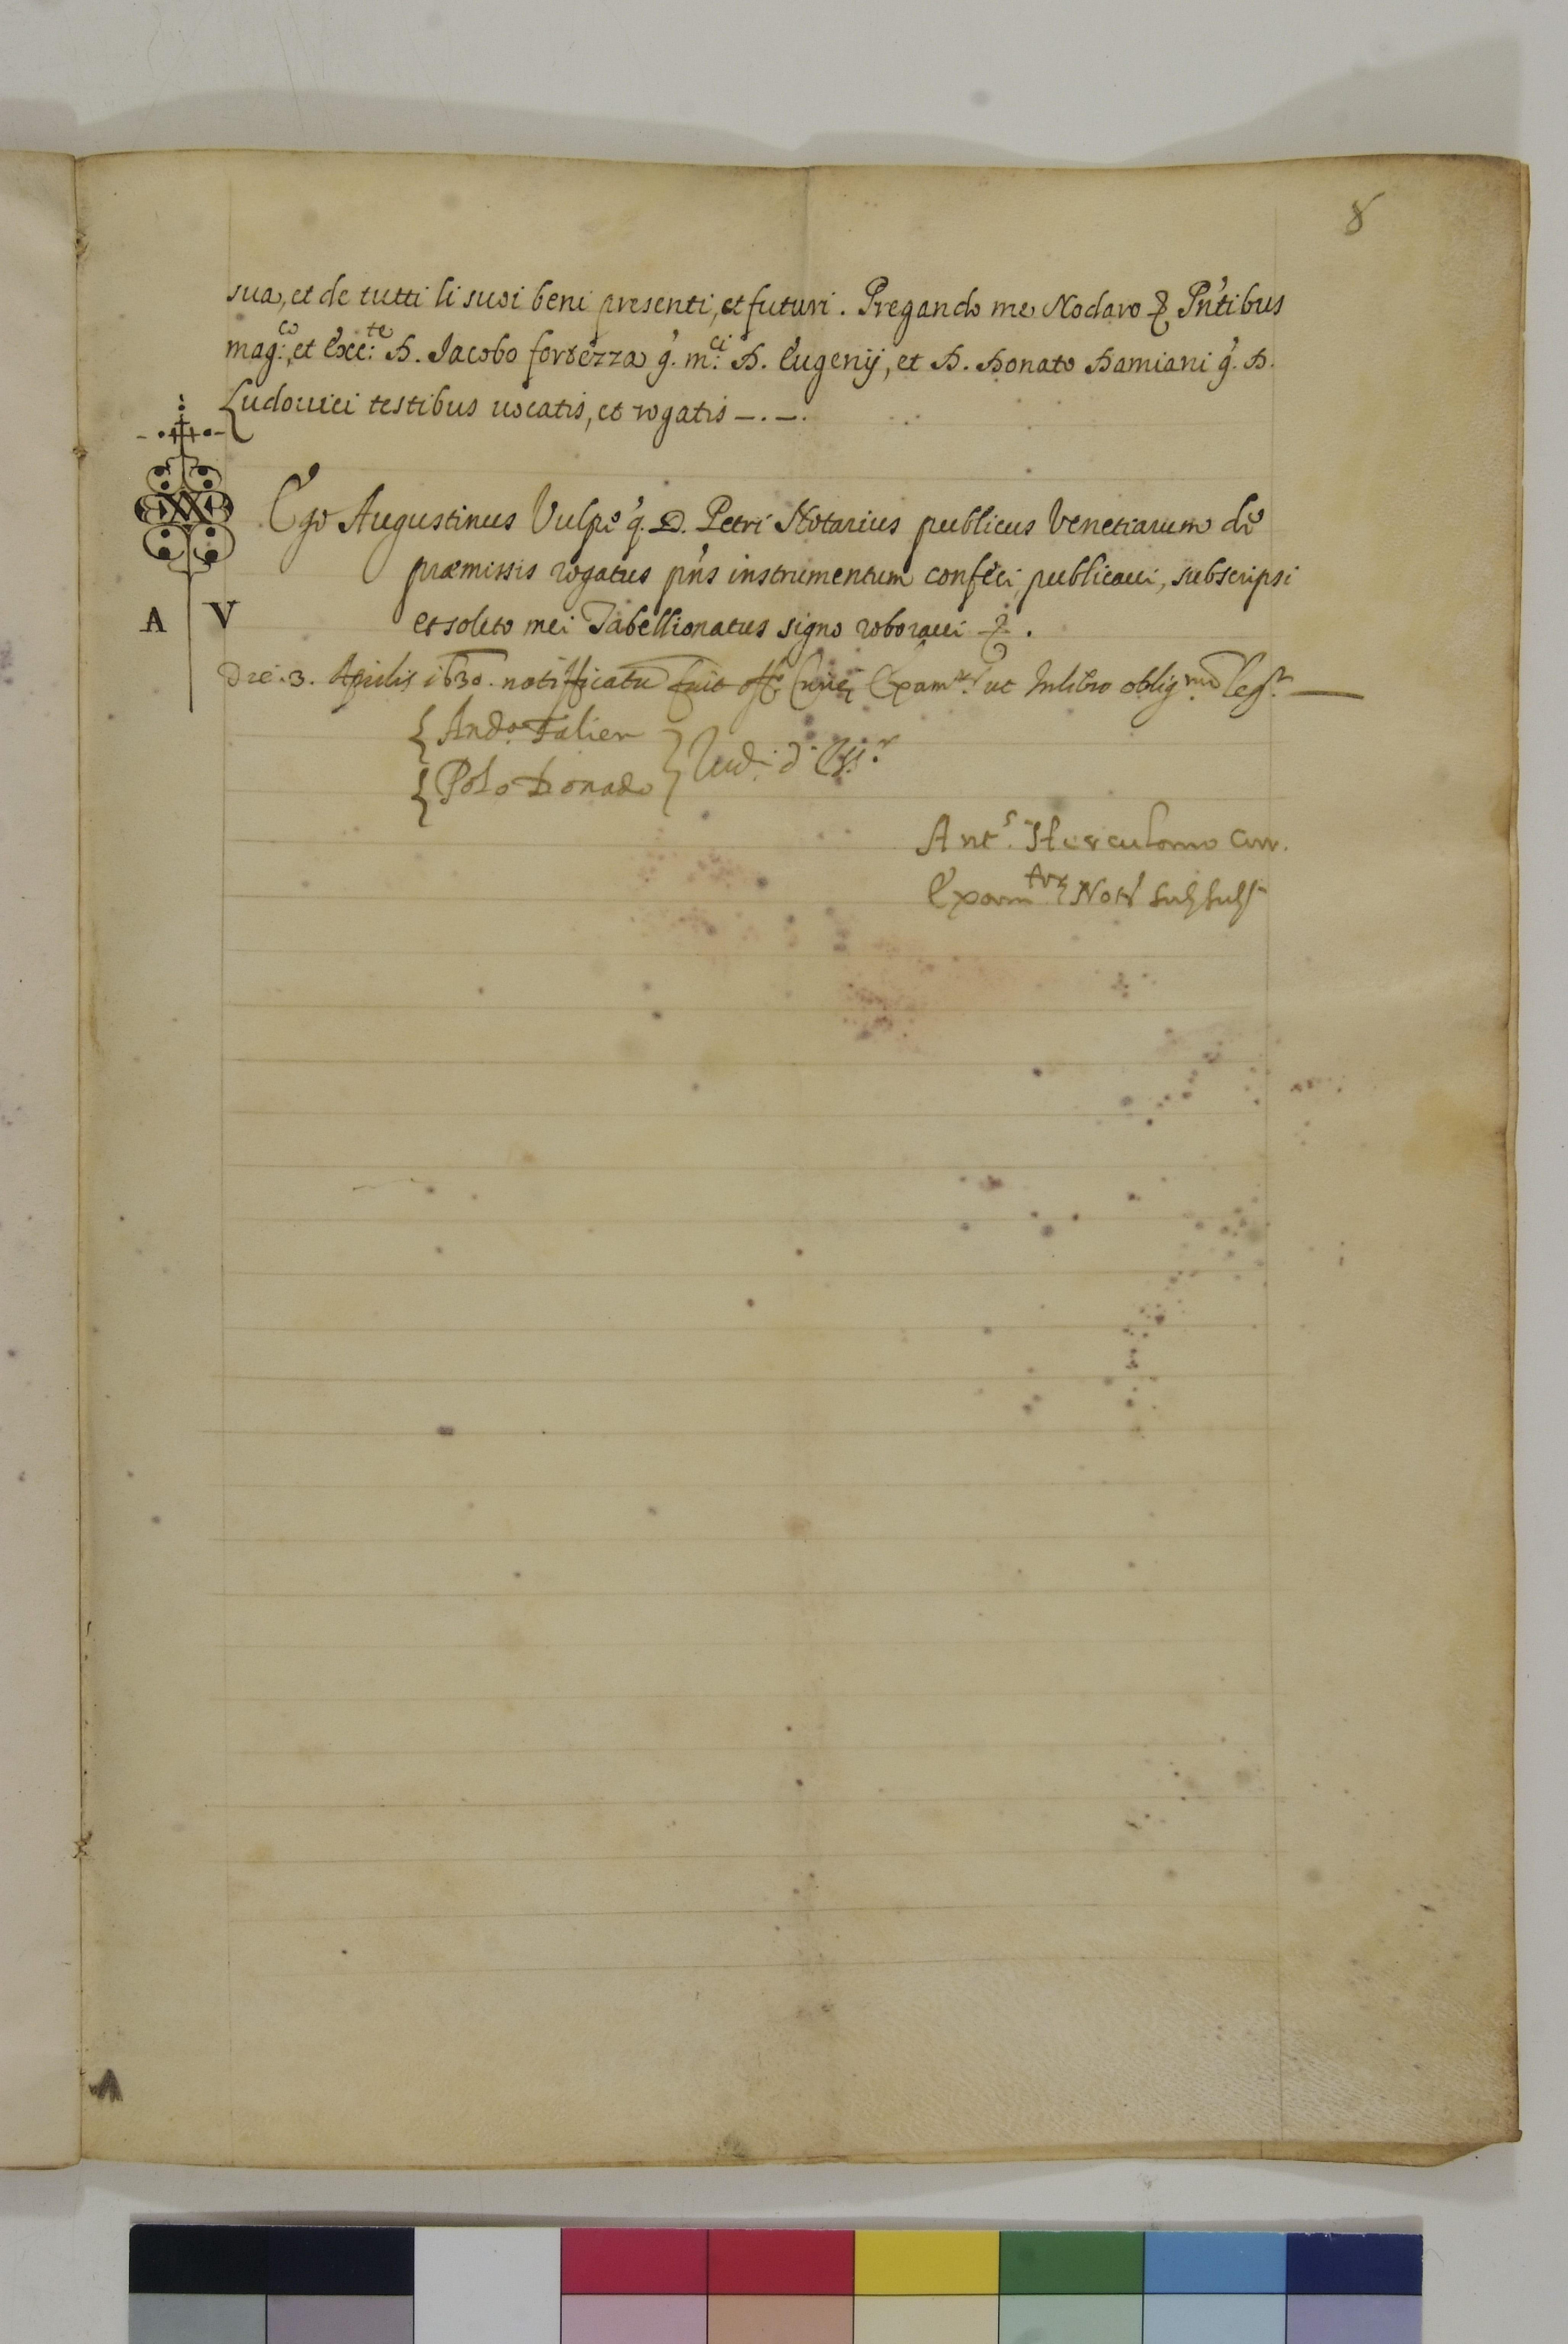 8
sua, et de tutti li suoi beni presenti, et futuri. Pregando me Nodaro & Pñtibus
mag:co, et Exc:te D. Iacobo fortezza q. m:ci D. Eugenij, et D. Donato Damiani q. D.
Ludouici testibus uocatis, et rogatis —.—.
Ego Augustinus Vulpe q. D. Petri Notarius publicus Venetiarum de
præmissis rogatus pñs instrumentum confeci, publicaui, subscripsi
A V et solito mei Tabellionatus signo roboraui &.
Die. 3. Aprilis 1630. notifficatũ fuit off.o Curiæ Exam.r ut In libro oblig.
And.a Falier
Polo Donado } Iud. d Ess.r
Ant.s Herculano Cur.
Exam.tor Not